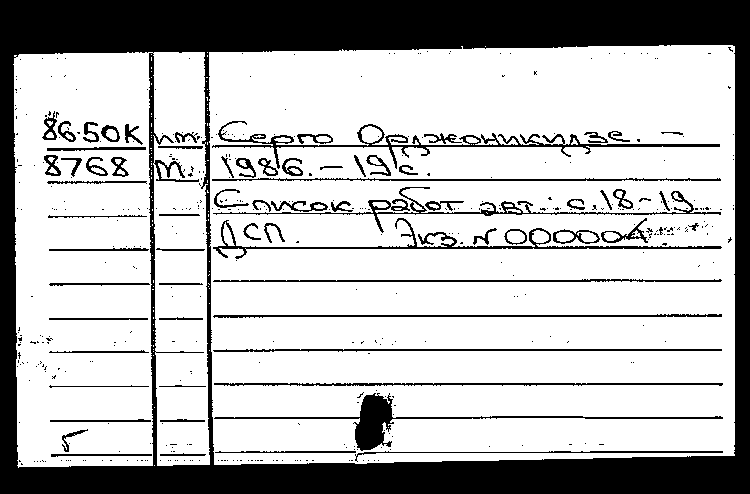 86-50К им. Серго Орджоникидзе. -
8768 т. 1986. - 19 с.
Список работ авт.: с. 18-19.
ДСП. Экз. N 000004
б